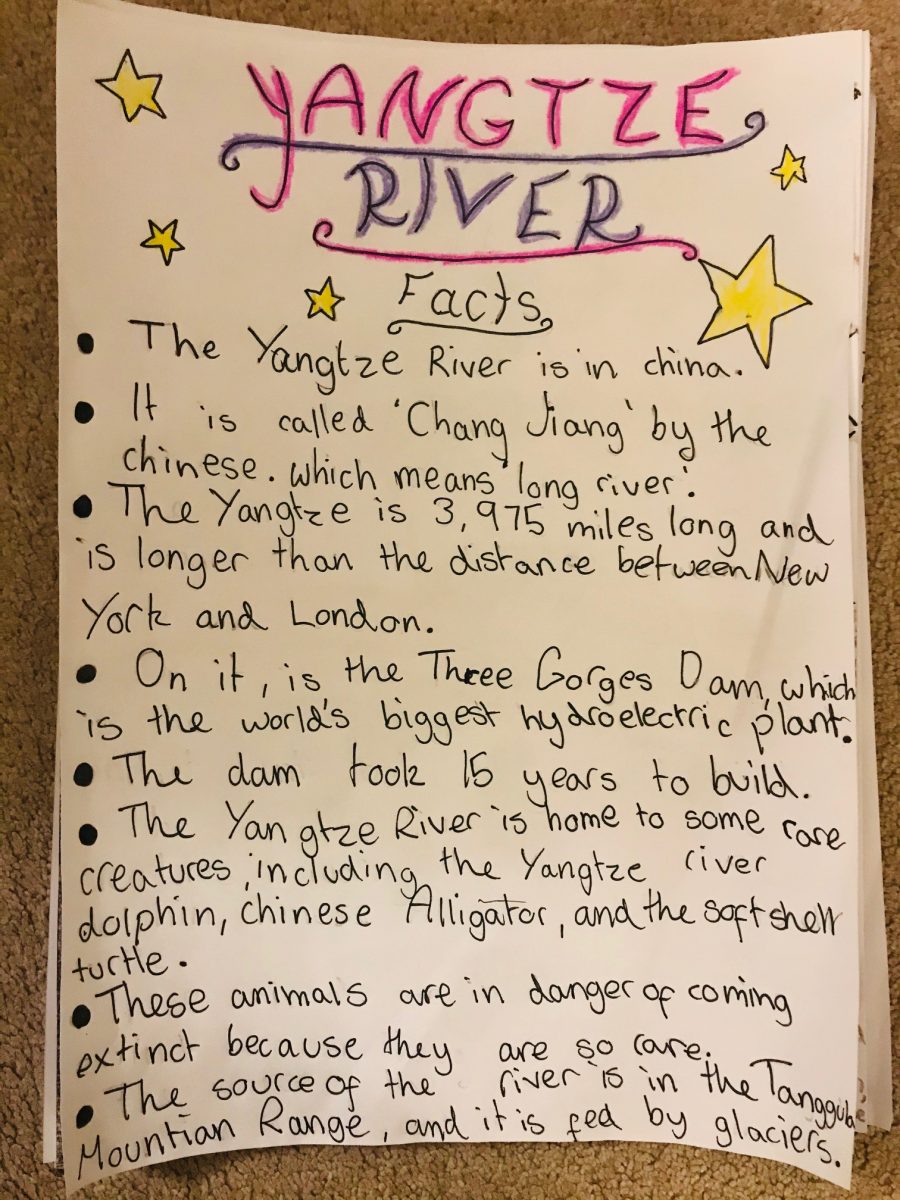 YANGTZE
RIVER
Facts
• The Yangtze River is in china.
• It is called 'Chang Jiang' by the
chinese. which means 'long river'.
• The Yangtze is 3,975 miles long and
is longer than the distance between New
York and London.
• On it, is the Three Gorges Dam, which
is the world's biggest hydroelectric plant.
• The dam took 15 years to build.
• The Yangtze River is home to some rare
creatures, including the Yangtze river
dolphin, chinese Alligator, and the softshell
turtle.
• These animals are in danger of coming
extinct because they are so rare.
• The source of the river is in the Tanggula
Mountian Range, and it is fed by glaciers.